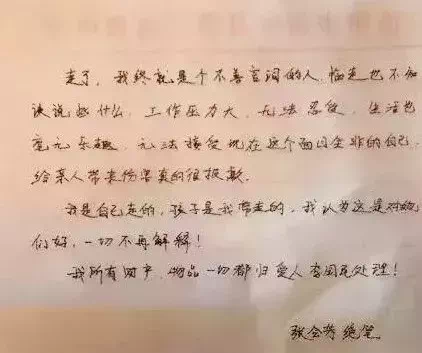 走了，我终就是个不善言词的人，临走也不知
该说些什么，工作压力大，无法忍受，生活也
毫无乐趣，无法接受现在这个面目全非的自己，
给亲人带来伤害真的很抱歉。
我是自己走的，孩子是我带走的，我认为这是对她
们好，一切不再解释！
我所有财产、物品一切都归爱人李国处理！
张会芳 绝笔